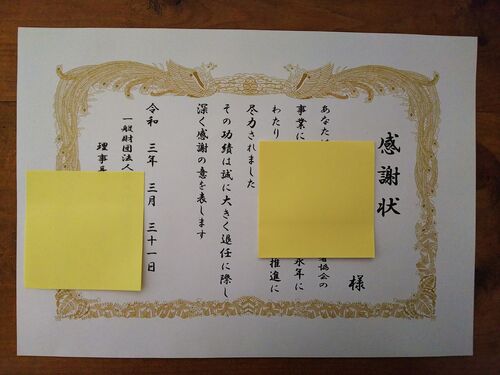 感謝状
様
あなた
協会の
事業に
永年に
わたり
推進に
尽力されました
その功績は誠に大きく退任に際し
深く感謝の意を表します
令和 三年 三月 三十一日
一般財団法人
理事